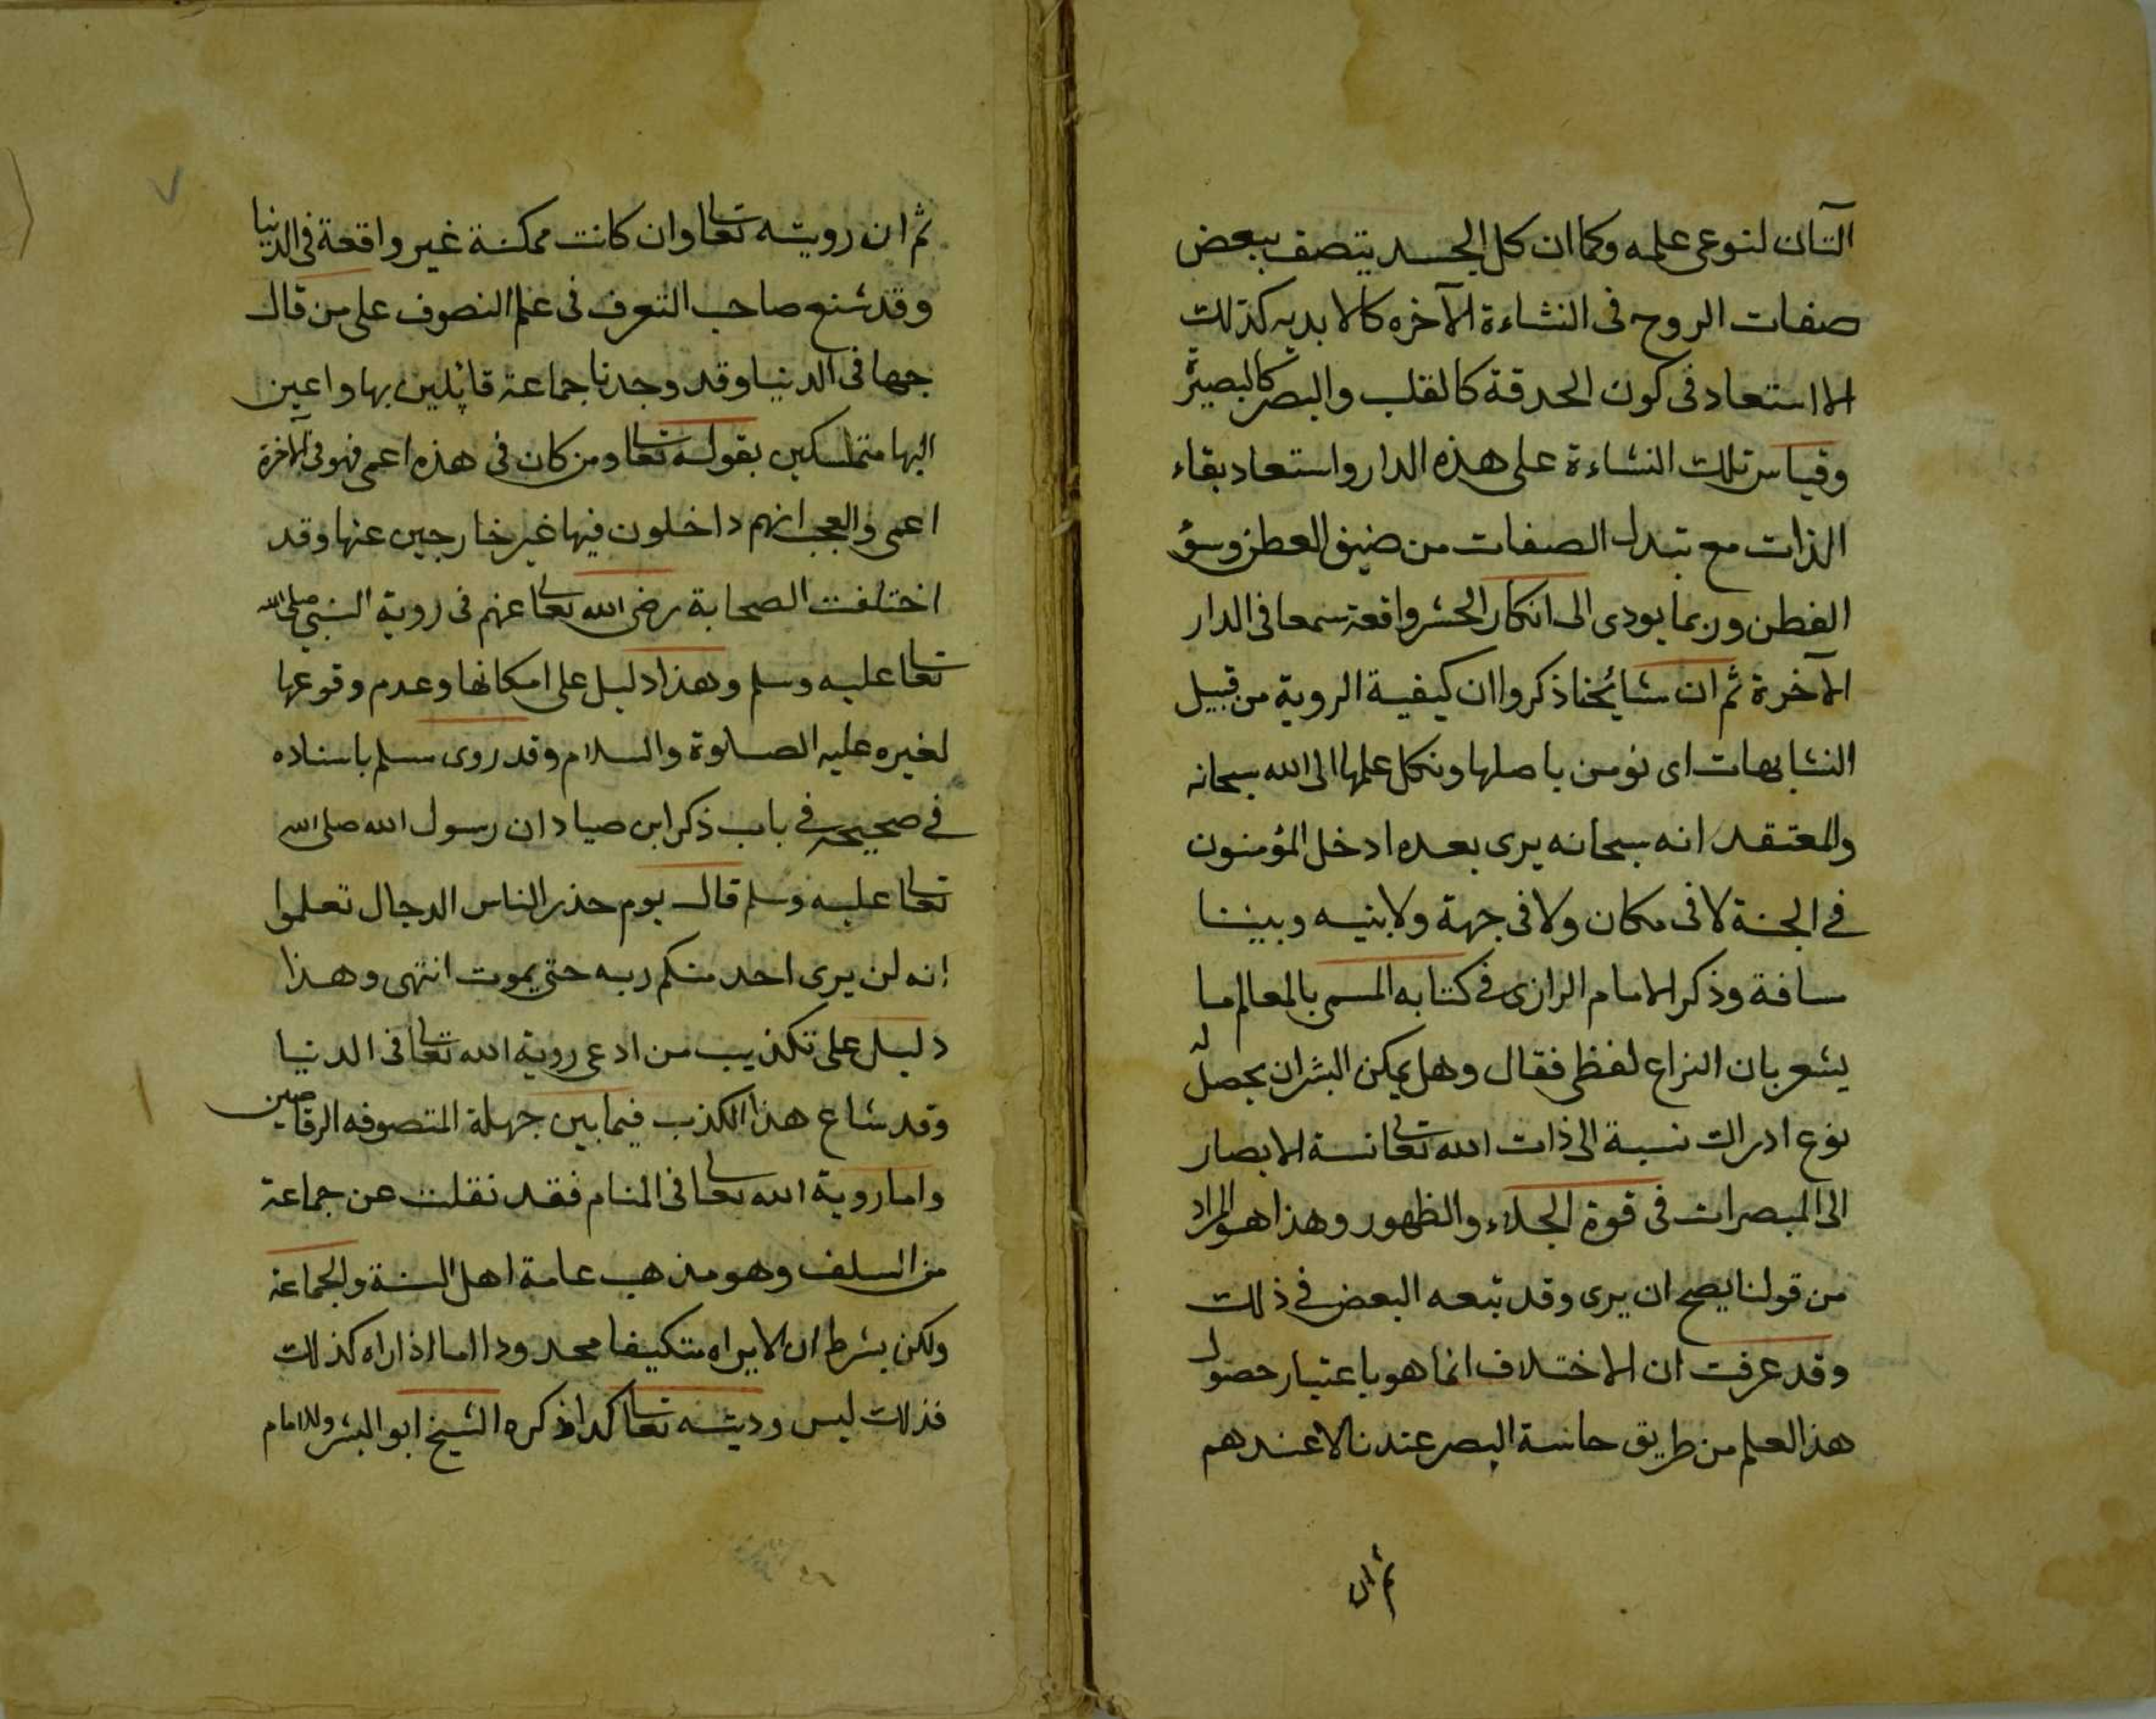 التان لنوعى علمه وكما ان كل الجسد يتصف ببعض
صفات الروح فى النشاءة الآخره كالابديه كذلك
الاستعاد فى كون الحدقة كالقلب والبصر كالبصيرة
وقياس تلك النشاءة على هذه الدار واستعاد بقاء
الذات مع تبدل الصفات من ضيق العطن وسؤ
الفطن وربما يودى الى انكار الحشر واقعة سمعا فى الدار
الآخرة ثم ان مشائخنا ذكروا ان كيفية الروية من قبيل
المتشابهات اى نومن باصلها ونكل علمها الى الله سبحانه
والمعتقد انه سبحانه يرى بعده ادخل المؤمنون
فى الجنة لا فى مكان ولا فى جهة ولا بنيه وبيننا
مسافة وذكر الامام الرازى فى كتابه المسمى بالمعالم ما
يشعر بان النزاع لفظى فقال وهل يمكن البشر ان يحصل له
نوع ادراك نسبة الى ذات الله تعالى نسة الابصار
الى المبصرات فى قوة الجلاء والظهور وهذا هو المراد
من قولنا يصح ان يرى وقد تبعه البعض فى ذلك
وقد عرفت ان الاختلاف انما هو باعتبار حصول
هذا العلم من طريق حاسة البصر عندنا لا عندهم
ثم ان
ثم ان رويته تعالى وان كانت ممكنة غير واقعة فى الدنيا
وقد شنع صاحب التعرف فى علم التصوف على من قال
بها فى الدنيا وقد وجدنا جماعة قائلين بها واعين
اليها متمسكين بقوله تعالى ومن كان فى هذه اعمى فهو فى الآخرة
اعمى والعجب انهم داخلون فيها غير خارجين عنها وقد
اختلفت الصحابة رضى الله تعالى عنهم فى روية النبى صلى الله
تعالى عليه وسلم وهذا دليل على امكانها وعدم وقوعها
لغيره عليه الصلوة والسلام وقد روى مسلم باسناده
فى صحيحه فى باب ذكر ابن صياد ان رسول الله صلى الله
تعالى عليه وسلم قال يوم حذر الناس الدجال تعلموا
انه لن يرى احد منكم ربه حتى يموت انتهى وهذا
دليل على تكذيب من ادعى روية الله تعالى فى الدنيا
وقد شاع هذا الكذب فيما بين جهلة المتصوفه الرقاصين
واما روية الله تعالى فى المنام فقد نقلت عن جماعة
من السلف وهو مذهب عامة اهل السنة والجماعة
ولكن بشرط ان لا يراه متكيفا محدودا اما اذا راه كذلك
فذلك ليس وديته تعالى كدا ذكره الشيخ ابو البشر وللامام